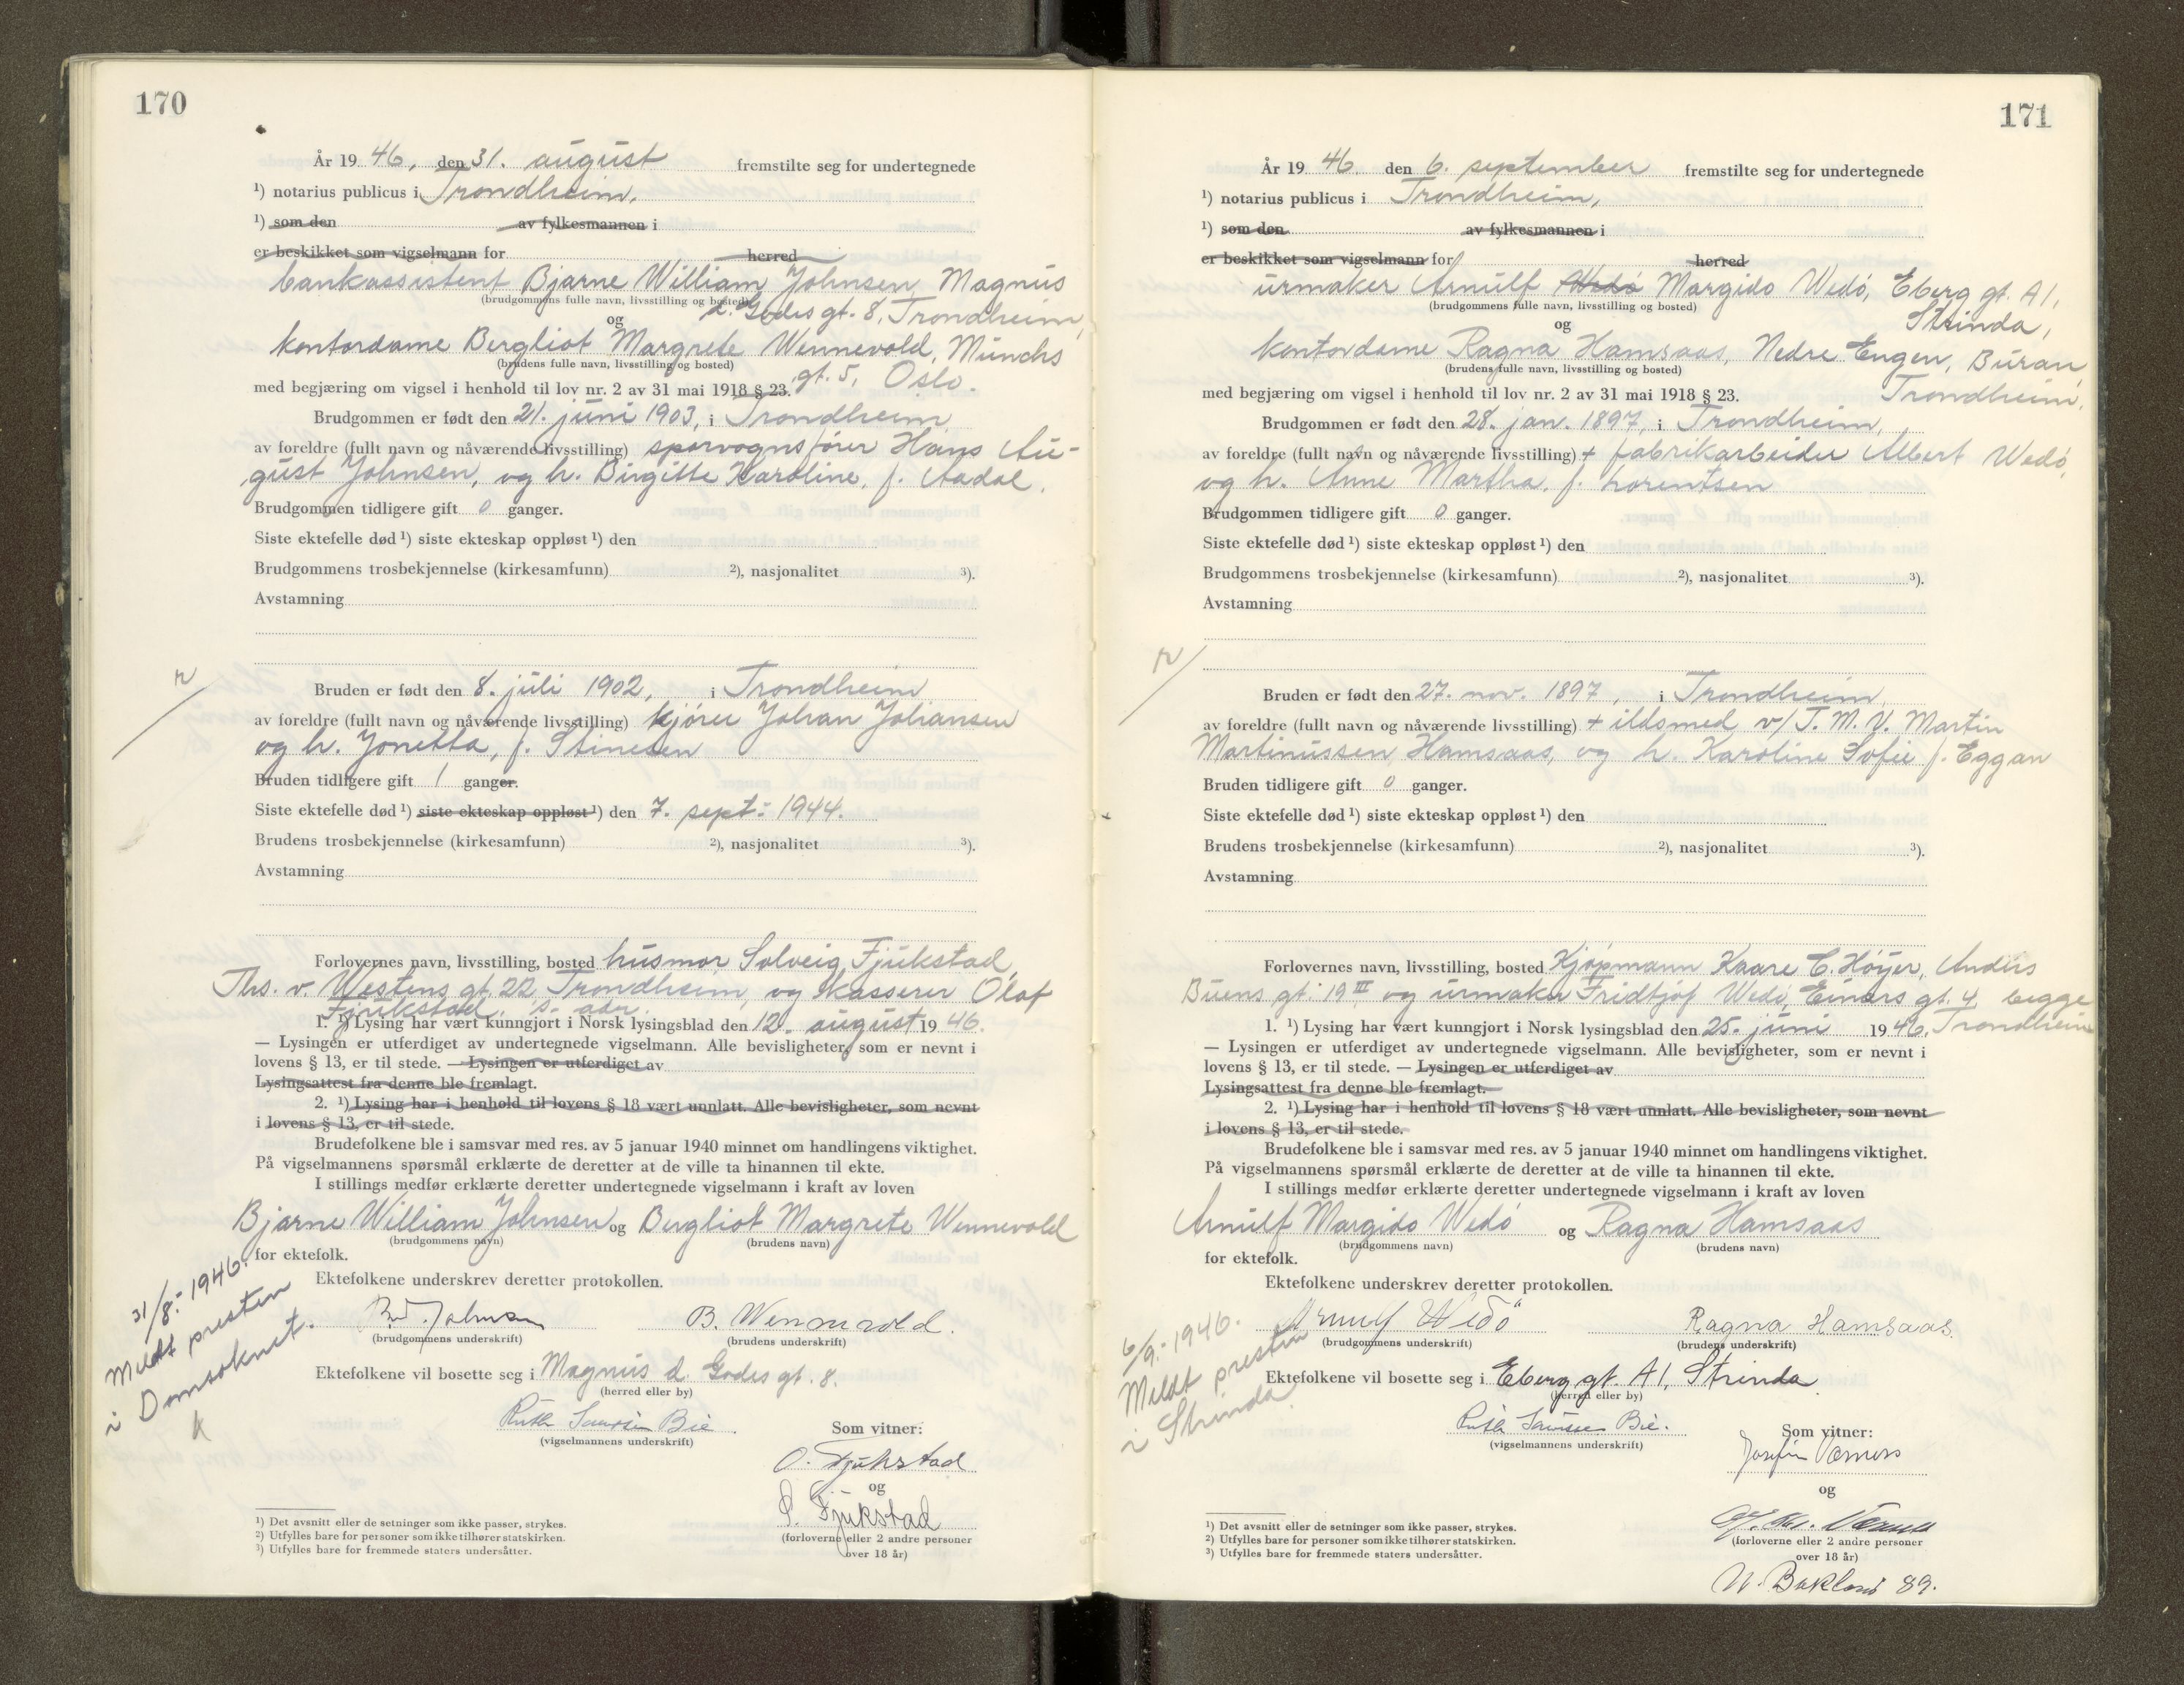 170
År 19 46, den 31. august fremstilte seg for undertegnede
¹) notarius publicus i Trondheim.
¹) som den av fylkesmannen i
er beskikket som vigselmann for herred
bankassistent Bjarne William Johnsen, Magnus
(brudgommens fulle navn, livsstilling og bosted)
d. Godes gt. 8, Trondheim,
og
kontordame Bergliot Margrete Wennevold, Munchs
(brudens fulle navn, livsstilling og bosted)
gt. 5, Oslo.
med begjæring om vigsel i henhold til lov nr. 2 av 31 mai 1918 § 23.
Brudgommen er født den 21. juni 1903, i Trondheim
av foreldre (fullt navn og nåværende livsstilling) sporvognsfører Hans Au-
gust Johnsen, og h. Birgitte Karoline, f. Aadal.
Brudgommen tidligere gift 0 ganger.
Siste ektefelle død ¹) siste ekteskap oppløst ¹) den
Brudgommens trosbekjennelse (kirkesamfunn) ²), nasjonalitet ³).
Avstamning
Bruden er født den 8. juli 1902, i Trondheim
av foreldre (fullt navn og nåværende livsstilling) kjører Johan Johansen
og h. Jonetta, f. Stinesen
Bruden tidligere gift 1 ganger.
Siste ektefelle død ¹) siste ekteskap oppløst ¹) den 7. sept.- 1944.
Brudens trosbekjennelse (kirkesamfunn) ²), nasjonalitet ³).
Avstamning
Forlovernes navn, livsstilling, bosted husmor Solveig Fjukstad,
Ths. v. Westens gt. 22 Trondheim, og kasserer Olaf
Fjukstad, s. adr.
1. ¹) Lysing har vært kunngjort i Norsk lysingsblad den 12. august 19 46.
— Lysingen er utferdiget av undertegnede vigselmann. Alle bevisligheter, som er nevnt i
lovens § 13, er til stede. — Lysingen er utferdiget av
Lysingsattest fra denne ble fremlagt.
2. ¹) Lysing har i henhold til lovens § 18 vært unnlatt. Alle bevisligheter, som nevnt
i lovens § 13, er til stede.
Brudefolkene ble i samsvar med res. av 5 januar 1940 minnet om handlingens viktighet.
På vigselmannens spørsmål erklærte de deretter at de ville ta hinannen til ekte.
I stillings medfør erklærte deretter undertegnede vigselmann i kraft av loven
Bjarne William Johnsen og Bergliot Margrete Wennevold
(brudgommens navn) (brudens navn)
for ektefolk.
Ektefolkene underskrev deretter protokollen.
31/8.- 1946.
Meldt presten
i Domsoknet.
B.W. Johnsen B. Wennevold.
(brudgommens underskrift) (brudens underskrift)
Ektefolkene vil bosette seg i Magnus d. Godes gt. 8.
(herred eller by)
Ruth Bie
(vigselmannens underskrift)
Som vitner:
O. Fjukstad
og
S. Fjukstad
(forloverne eller 2 andre personer
over 18 år)
¹) Det avsnitt eller de setninger som ikke passer, strykes.
²) Utfylles bare for personer som ikke tilhører statskirken.
³) Utfylles bare for fremmede staters undersåtter.
171
År 19 46 den 6. september fremstilte seg for undertegnede
¹) notarius publicus i Trondheim,
¹) som den av fylkesmannen i
er beskikket som vigselmann for herred
urmaker Arnulf Wedø Margido Wedø, Eberg gt. A1,
(brudgommens fulle navn, livsstilling og bosted)
Strinda,
og
kontordame Ragna Hamsaas, Nedre Engen, Buran,
(brudens fulle navn, livsstilling og bosted)
Trondheim.
med begjæring om vigsel i henhold til lov nr. 2 av 31 mai 1918 § 23.
Brudgommen er født den 28. jan. 1897, i Trondheim,
av foreldre (fullt navn og nåværende livsstilling) + fabrikarbeider Albert Wedø,
og h. Anne Martha, f. Lorentsen
Brudgommen tidligere gift 0 ganger.
Siste ektefelle død ¹) siste ekteskap oppløst ¹) den
Brudgommens trosbekjennelse (kirkesamfunn) ²), nasjonalitet ³).
Avstamning
Bruden er født den 27. nov. 1897, i Trondheim,
av foreldre (fullt navn og nåværende livsstilling) + ildsmed v/ T. M. V. Martin
Martinussen Hamsaas, og h. Karoline Sofie f. Eggan
Bruden tidligere gift 0 ganger.
Siste ektefelle død ¹) siste ekteskap oppløst ¹) den
Brudens trosbekjennelse (kirkesamfunn) ²), nasjonalitet ³).
Avstamning
Forlovernes navn, livsstilling, bosted Kjøpmann Kaare C. Høyer, Anders
Buens gt. 19 III og urmaker Fridtjof Wedø, Einars gt. 4, begge
Trondheim
1. ¹) Lysing har vært kunngjort i Norsk lysingsblad den 25. juni 19 46.
— Lysingen er utferdiget av undertegnede vigselmann. Alle bevisligheter, som er nevnt i
lovens § 13, er til stede. — Lysingen er utferdiget av
Lysingsattest fra denne ble fremlagt.
2. ¹) Lysing har i henhold til lovens § 18 vært unnlatt. Alle bevisligheter, som nevnt
i lovens § 13, er til stede.
Brudefolkene ble i samsvar med res. av 5 januar 1940 minnet om handlingens viktighet.
På vigselmannens spørsmål erklærte de deretter at de ville ta hinannen til ekte.
I stillings medfør erklærte deretter undertegnede vigselmann i kraft av loven
Arnulf Margido Wedø og Ragna Hamsaas
(brudgommens navn) (brudens navn)
for ektefolk.
Ektefolkene underskrev deretter protokollen.
6/9.- 1946.
Meldt presten
i Strinda.
Arnulf Wedø Ragna Hamsaas.
(brudgommens underskrift) (brudens underskrift)
Ektefolkene vil bosette seg i Eberg gt. A1, Strinda
(herred eller by)
Ruth Bie.
(vigselmannens underskrift)
Som vitner:
og
(forloverne eller 2 andre personer
over 18 år)
89.
¹) Det avsnitt eller de setninger som ikke passer, strykes.
²) Utfylles bare for personer som ikke tilhører statskirken.
³) Utfylles bare for fremmede staters undersåtter.